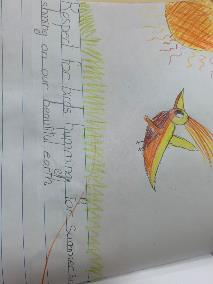 Rosped for birds humming for summer
shining on our beautiful earth